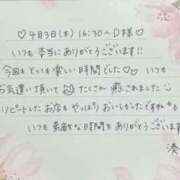 ♡4月3日(木) 16:30〜D様♡
いつも 本当に ありがとうございます!!
今回も とっても 楽しい 時間でした♡♡ いつも
お気遣い頂いて たくさん 癒されました
リピートした お店も やっぱり おいしもしたですね
いつも 素敵な 時間を ありがとうございます
湊